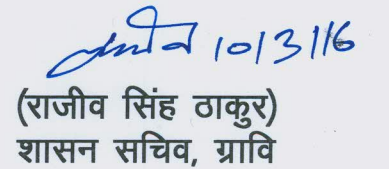 10/3/16
(राजीव सिंह ठाकुर)
शासन सचिव, ग्रावि